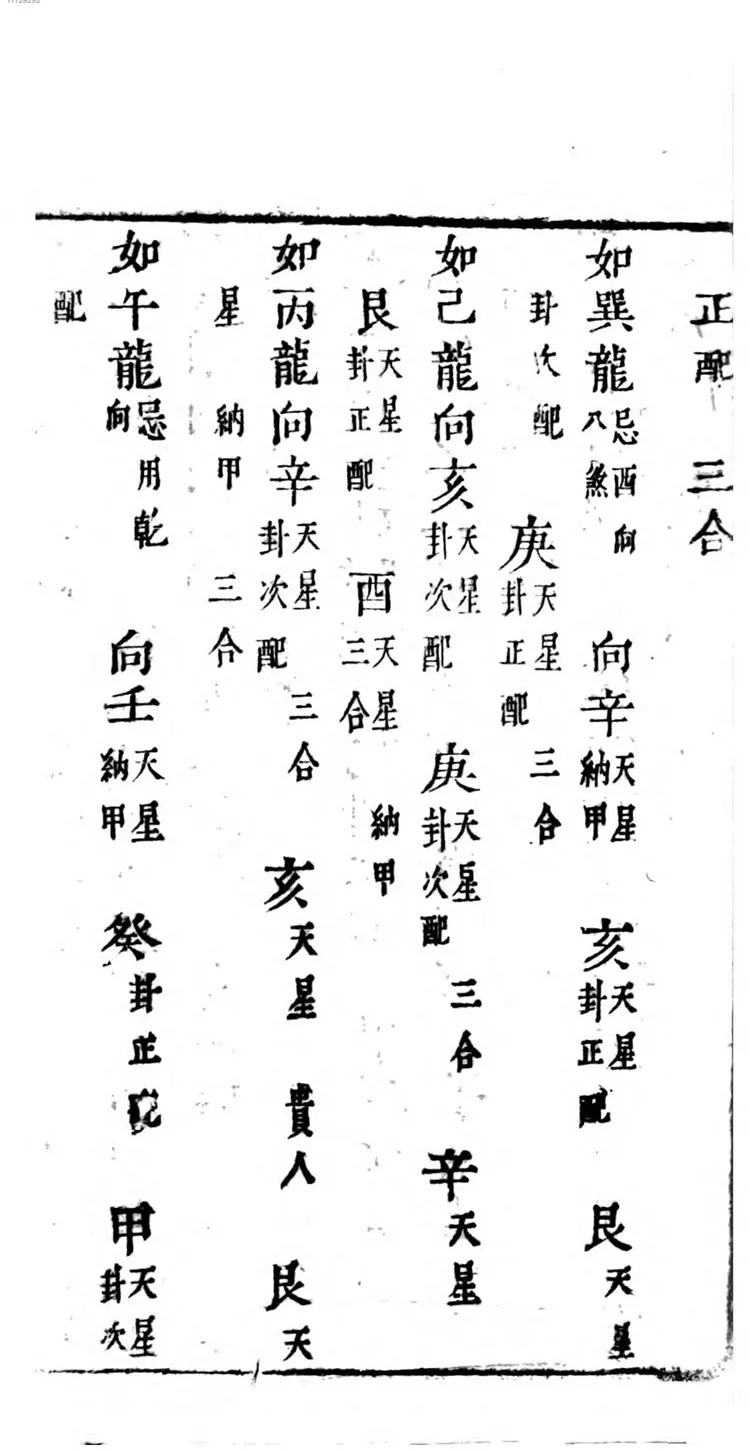 正配 三合
如巽龍忌酉向八煞 向辛天星納甲 亥天星卦正配 艮天星
卦次配 庚天星卦正配 三合
如己龍向亥天星卦次配 庚天星卦次配 三合 辛天星
艮天星卦正配 酉天星三合 納甲
如丙龍向辛天星卦次配 三合 亥天星 貴人 艮天
星 納甲 三合
如午龍忌用乾向 向壬天星納甲 癸卦正 甲天星卦次
配
11129292